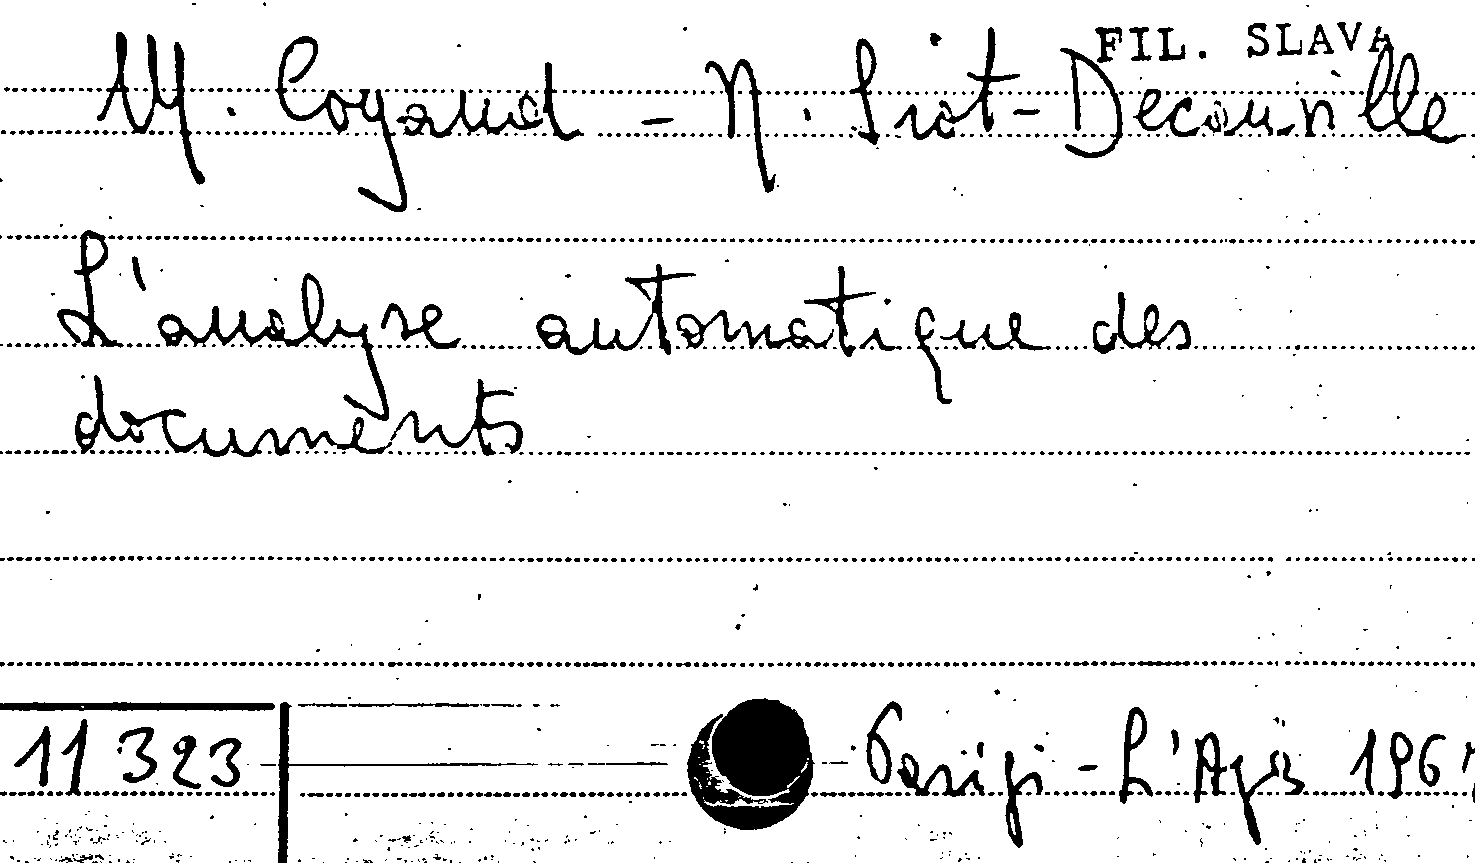 FIL. SLAVA
M. Coyaud - N. Siot-Decauville
L'analyse automatique des
documents
11323
Parigi - L'Agis